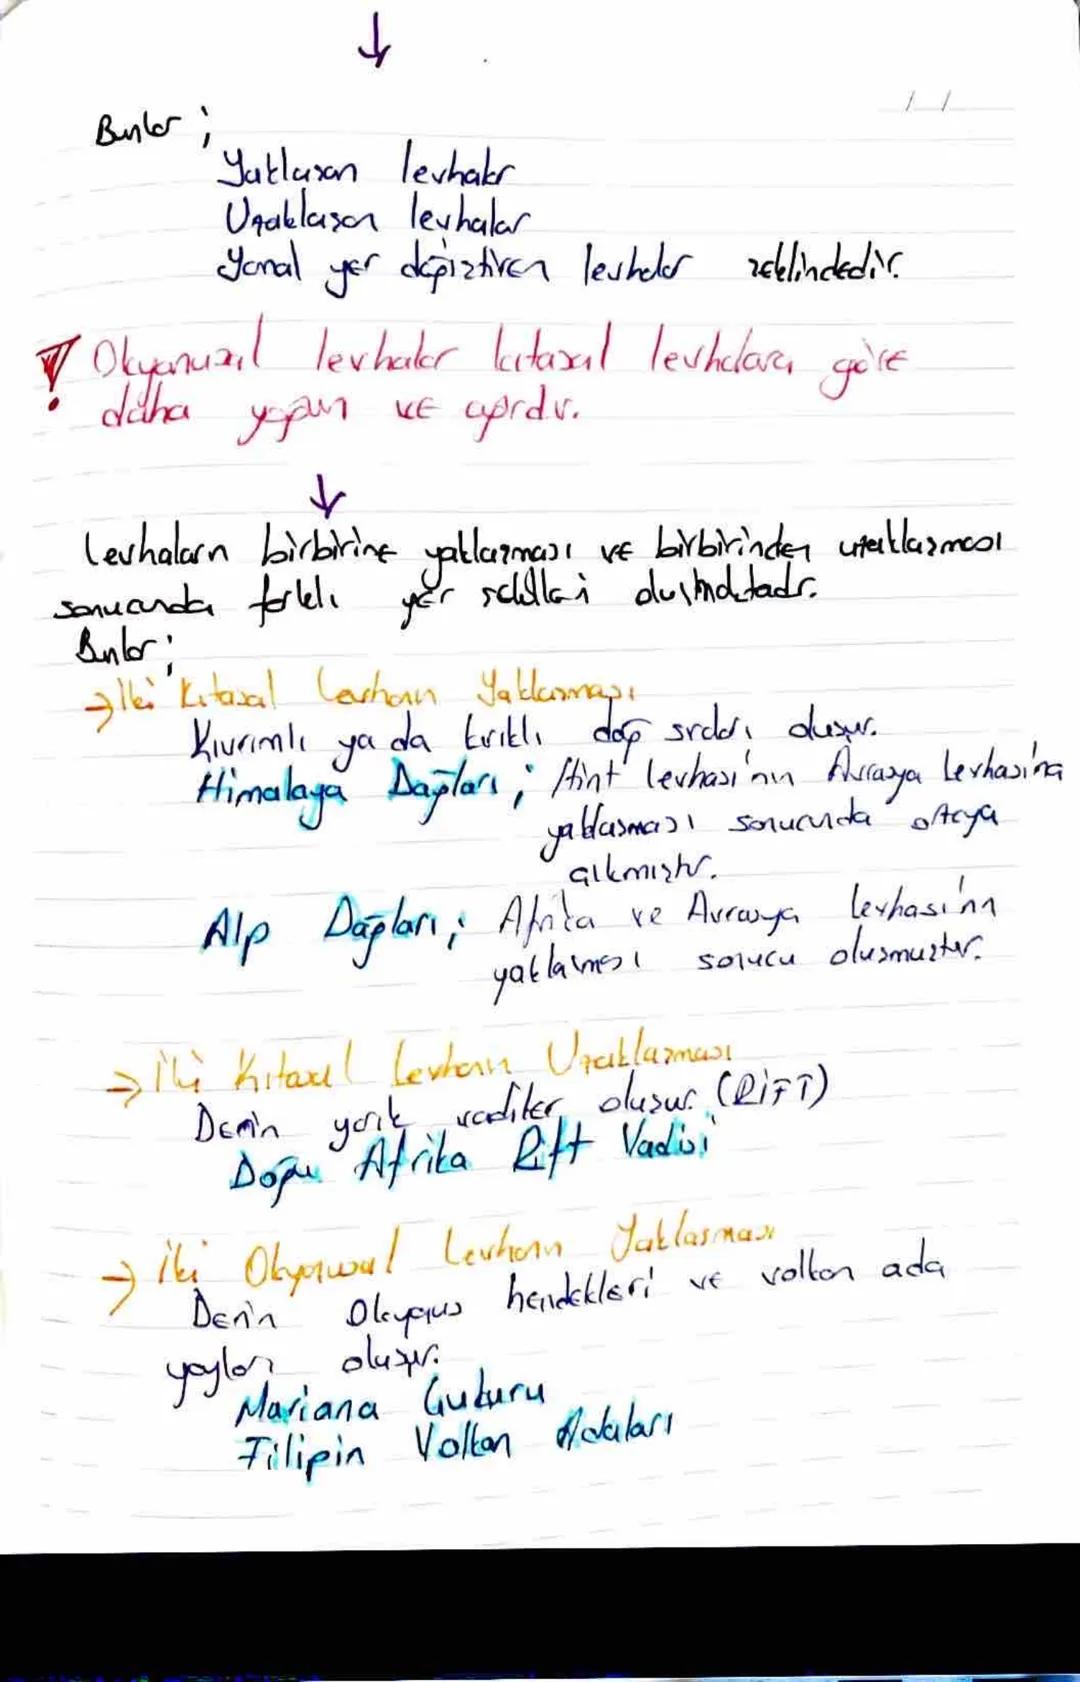 ↓
/ /
Bunlar ;
Yaklaşan levhalar
Uzaklaşan levhalar
Yanal yer değiştiren levhalar şeklindedir.
! Okyanusal levhalar kıtasal levhalara göre
daha yoğun ve ağırdır.
↓
Levhaların birbirine yaklaşması ve birbirinden uzaklaşması
sonucunda farklı yer şekilleri oluşmaktadır.
Bunlar ;
→ İki Kıtasal Levhanın Yaklaşması
Kıvrımlı ya da kırıklı dağ sıraları oluşur.
Himalaya Dağları ; Hint levhası'nın Avrasya Levhası'na
yaklaşması sonucunda ortaya
çıkmıştır.
Alp Dağları ; Afrika ve Avrasya levhası'nın
yaklaşması sonucu oluşmuştur.
→ İki Kıtasal Levhanın Uzaklaşması
Derin yarık vadiler oluşur. (RİFT)
Doğu Afrika Rift Vadisi
→ İki Okyanusal Levhanın Yaklaşması
Derin Okyanus hendekleri ve volkan ada
yayları oluşur.
Mariana Çukuru
Filipin Volkan Adaları